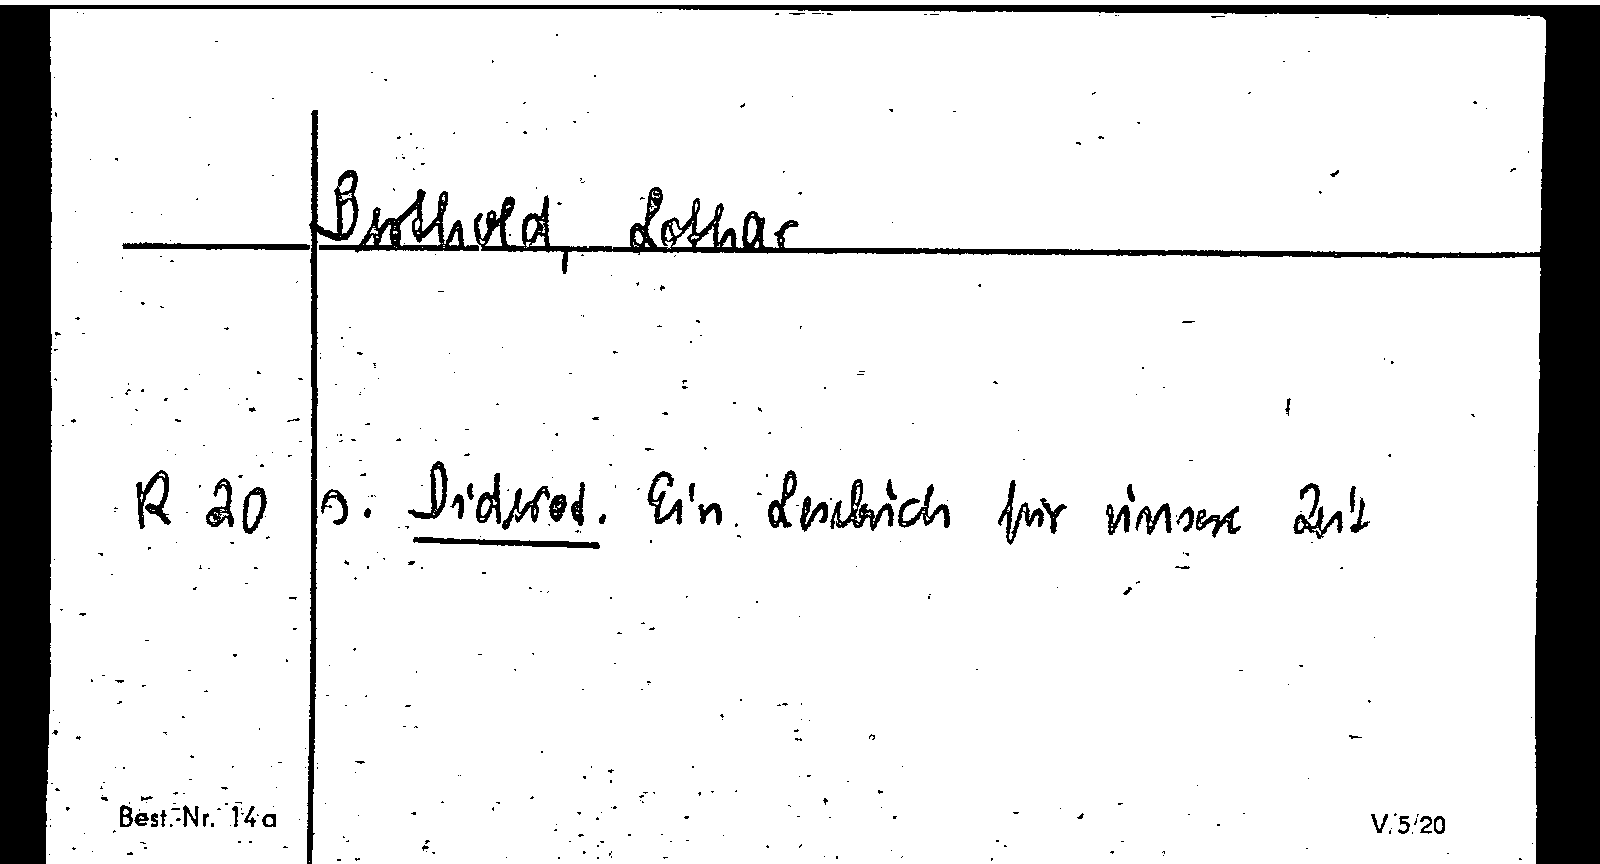 Berthold, Lothar
R 20 s. Diderot. Ein Lesebuch für unsere Zeit
Best.-Nr. 14a V/5/20